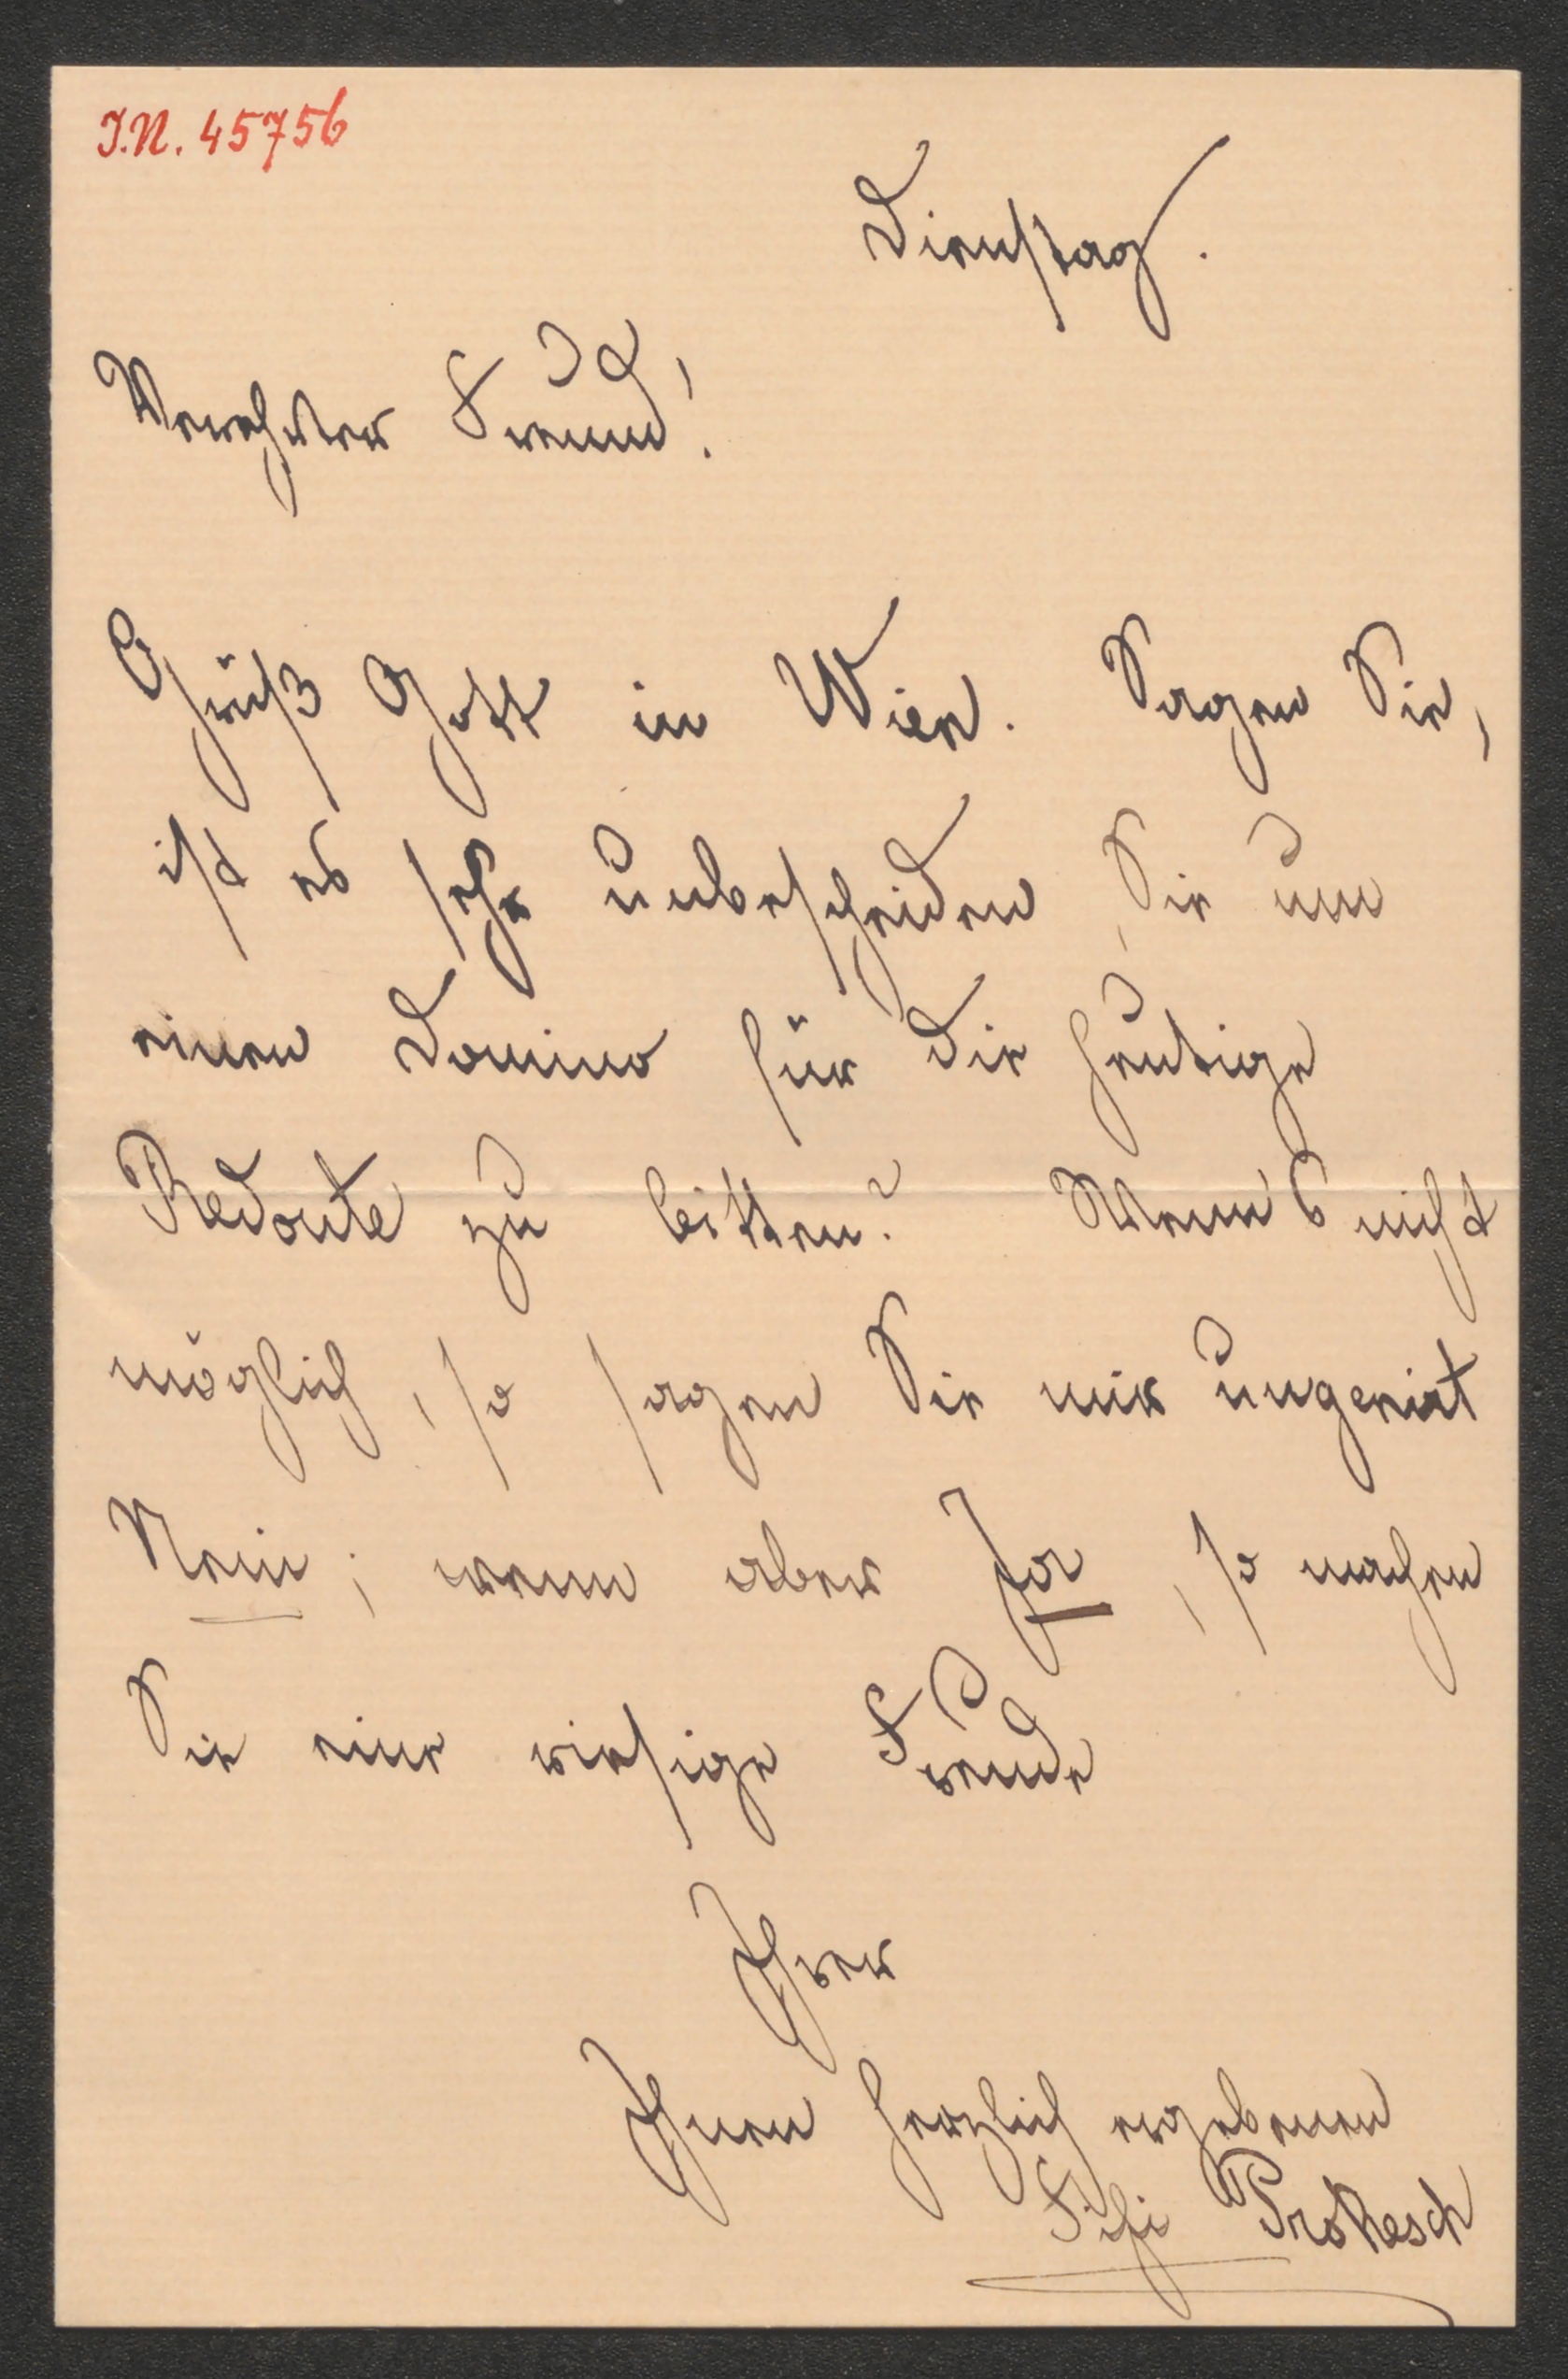 I.N. 45756
Dienstag.
Verehrter Freund!
Grüß Gott in Wien. Sagen Sie,
ist es sehr unbescheiden Sie um
einen Domino für die heutige
Redoute zu bitten? Wenn's nicht
möglich, so sagen Sie mir ungenirt
Nein; wenn aber Ja, so machen
Sie eine riesige Freude
Ihrer
Ihnen herzlich ergebenen
Prokesch